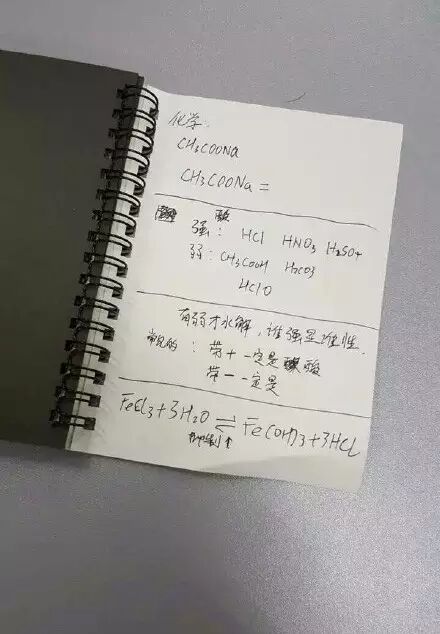 化学:
CH₃COONa
CH₃COONa =
酸
强: HCl HNO₃ H₂SO₄
弱: CH₃COOH H₂CO₃
HClO
有弱才水解,谁强显谁性.
常见的: 带+一定是酸
带-一定是
FeCl₃+3H₂O ⇌ Fe(OH)₃+3HCl
抑制↑